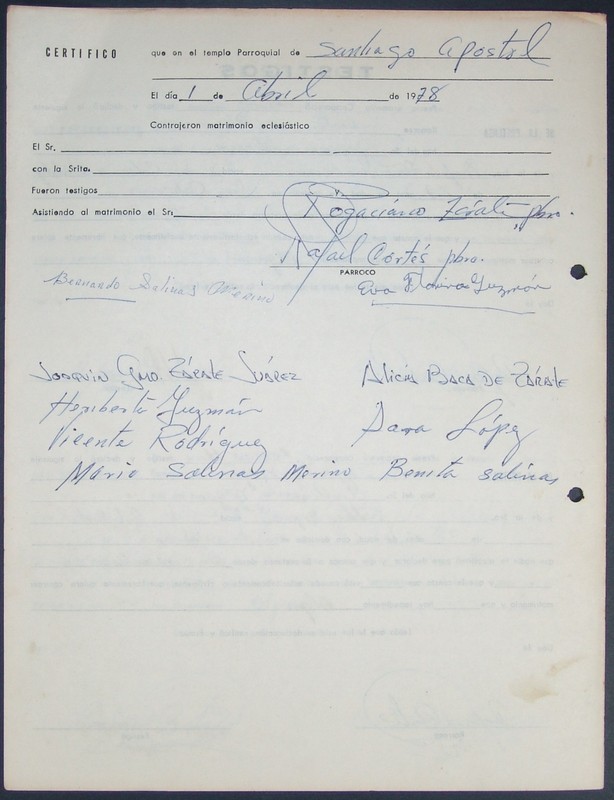 CERTIFICO que en el templo Parroquial de Santiago Apostol
El día 1 de Abril de 1978
Controjeron matrimonio eclesiástico
El Sr.
con la Srita.
Fueron testigos
Asistiendo al matrimonio el Sr. Rogaciano Zárate, pbro.
Rafael Cortés pbro.
PARROCO
Bernardo Salinas Merino Eva Guzmán
Joaquín Gmo Zárate Juárez Alicia Baca de Zárate
Heriberto Guzmán
Vicente Rodríguez Sara López
Mario Salinas Merino Benita Salinas